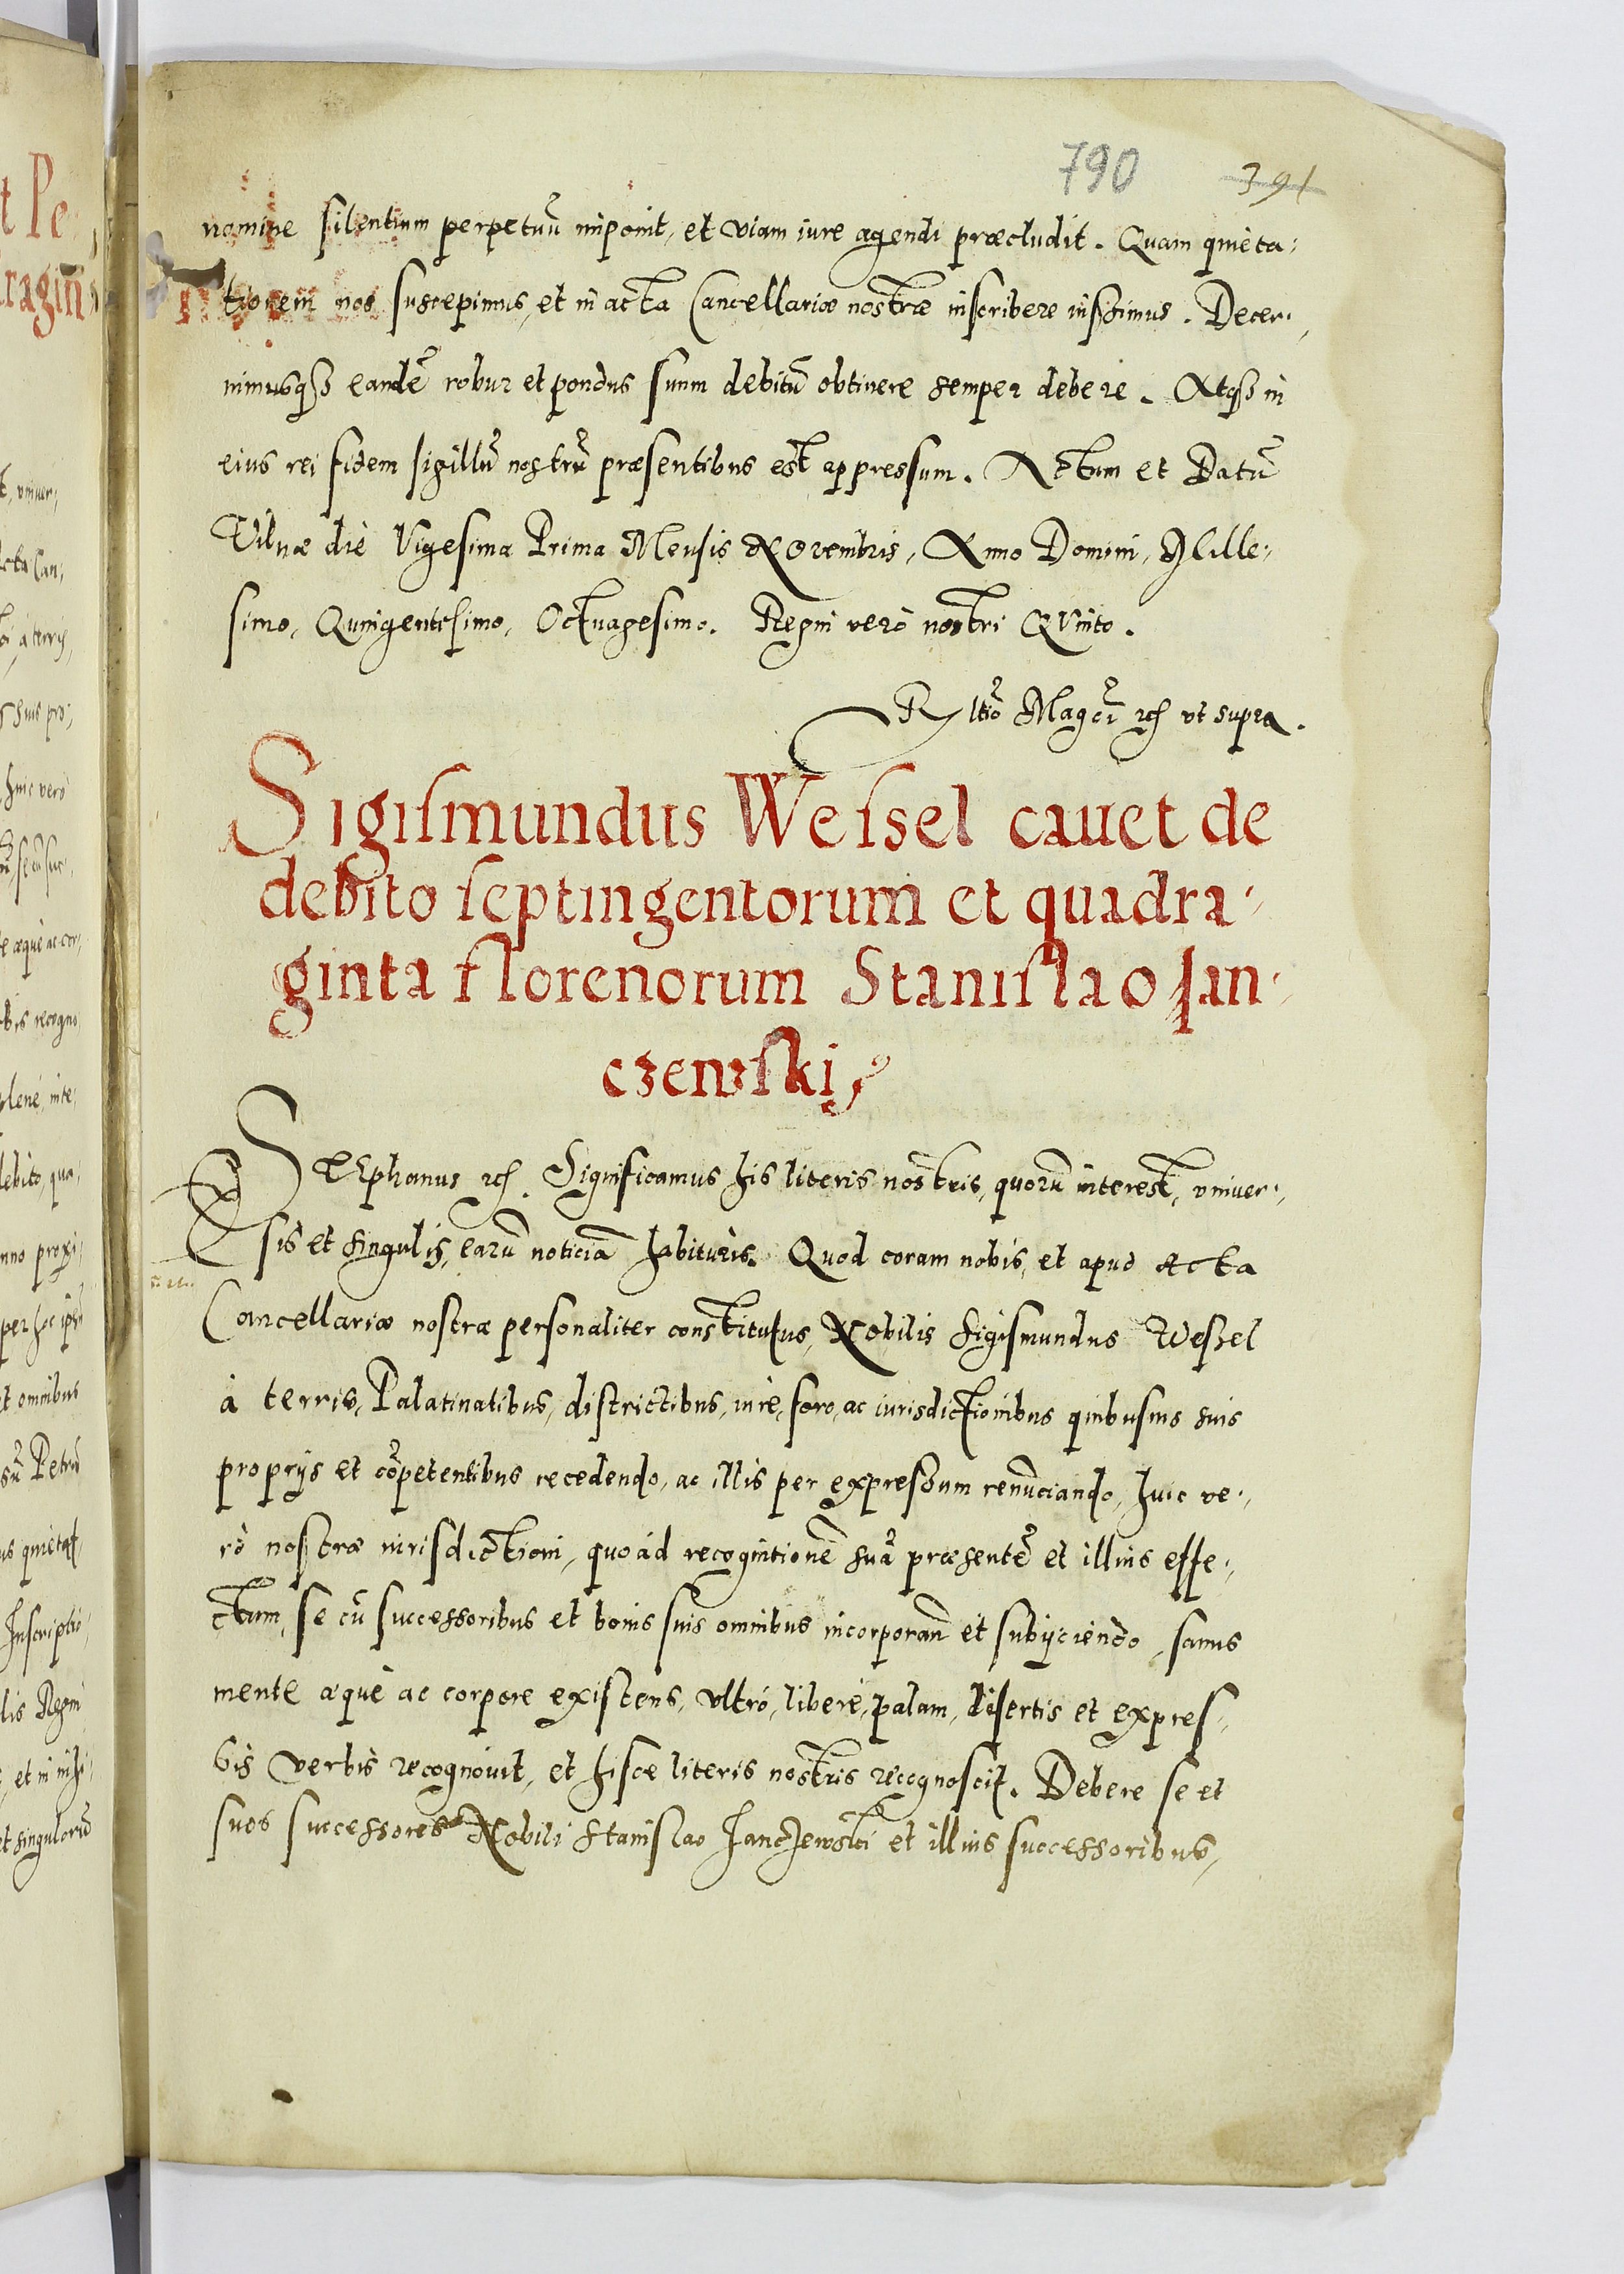 790 391
nomine silentium perpetuū imponit, et viam iure agendi præcludit. Quam quieta-
tionem nos suscepimus, et in acta Cancellariæ nostræ inscribere iussimus. Decer-
nimusq3 eandē robur et pondus suum debitū obtinere semper debere. Atq3 in
eius rei fidem sigillū nostrū præsentibus est appressum. Actum et Datū
Vilnæ die Vigesima Prima Mensis Novembris, Anno Domini, Mille-
simo, Quingentesimo, Octuagesimo. Regni verò nostri Quinto.
Rltio Magci etc ut supra.
Sigismundus Wessel cauet de
debito septingentorum et quadra-
ginta florenorum Stanislao Jan-
czewski
Stephanus etc. Significamus his literis nostris, quorū interest, vniuer-
sis et singulis, earū noticiā habituris. Quod coram nobis, et apud Acta
Cancellariæ nostræ personaliter constitutus, Nobilis Sigismundus Weßel
à terris, Palatinatibus, districtibus, iure, foro, ac iurisdictionibus quibusuis suis
proprijs et cōpetentibus recedendo, ac illis per expressum renūciando, huic ve-
rò nostræ iurisdictioni, quoad recognitionē suā præsentē et illius effe-
ctum, se cū successoribus et bonis suis omnibus incorporan̄ et subijciendo, sanus
mente æquè ac corpore existens, vltrò, liberè, palam, disertis et expres-
sis verbis recognouit, et hisce literis nostris recognoscit. Debere se et
suos successores Nobili Stanislao Janczewski et illius successoribus,